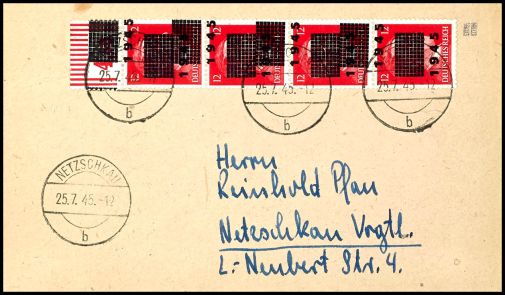 1945 1945 1945 1945
12 12 12 12
DEUTSCHES REICH DEUTSCHES REICH DEUTSCHES REICH DEUTSCHES REICH
25.7. 25.7.45.-12 25.7.45.-12
b b b
NETZSCHKAU
25.7.45.-12
b
Herrn
Reinhold Plau
Netzschkau Vogtl.
L.-Neubert Str. 4.